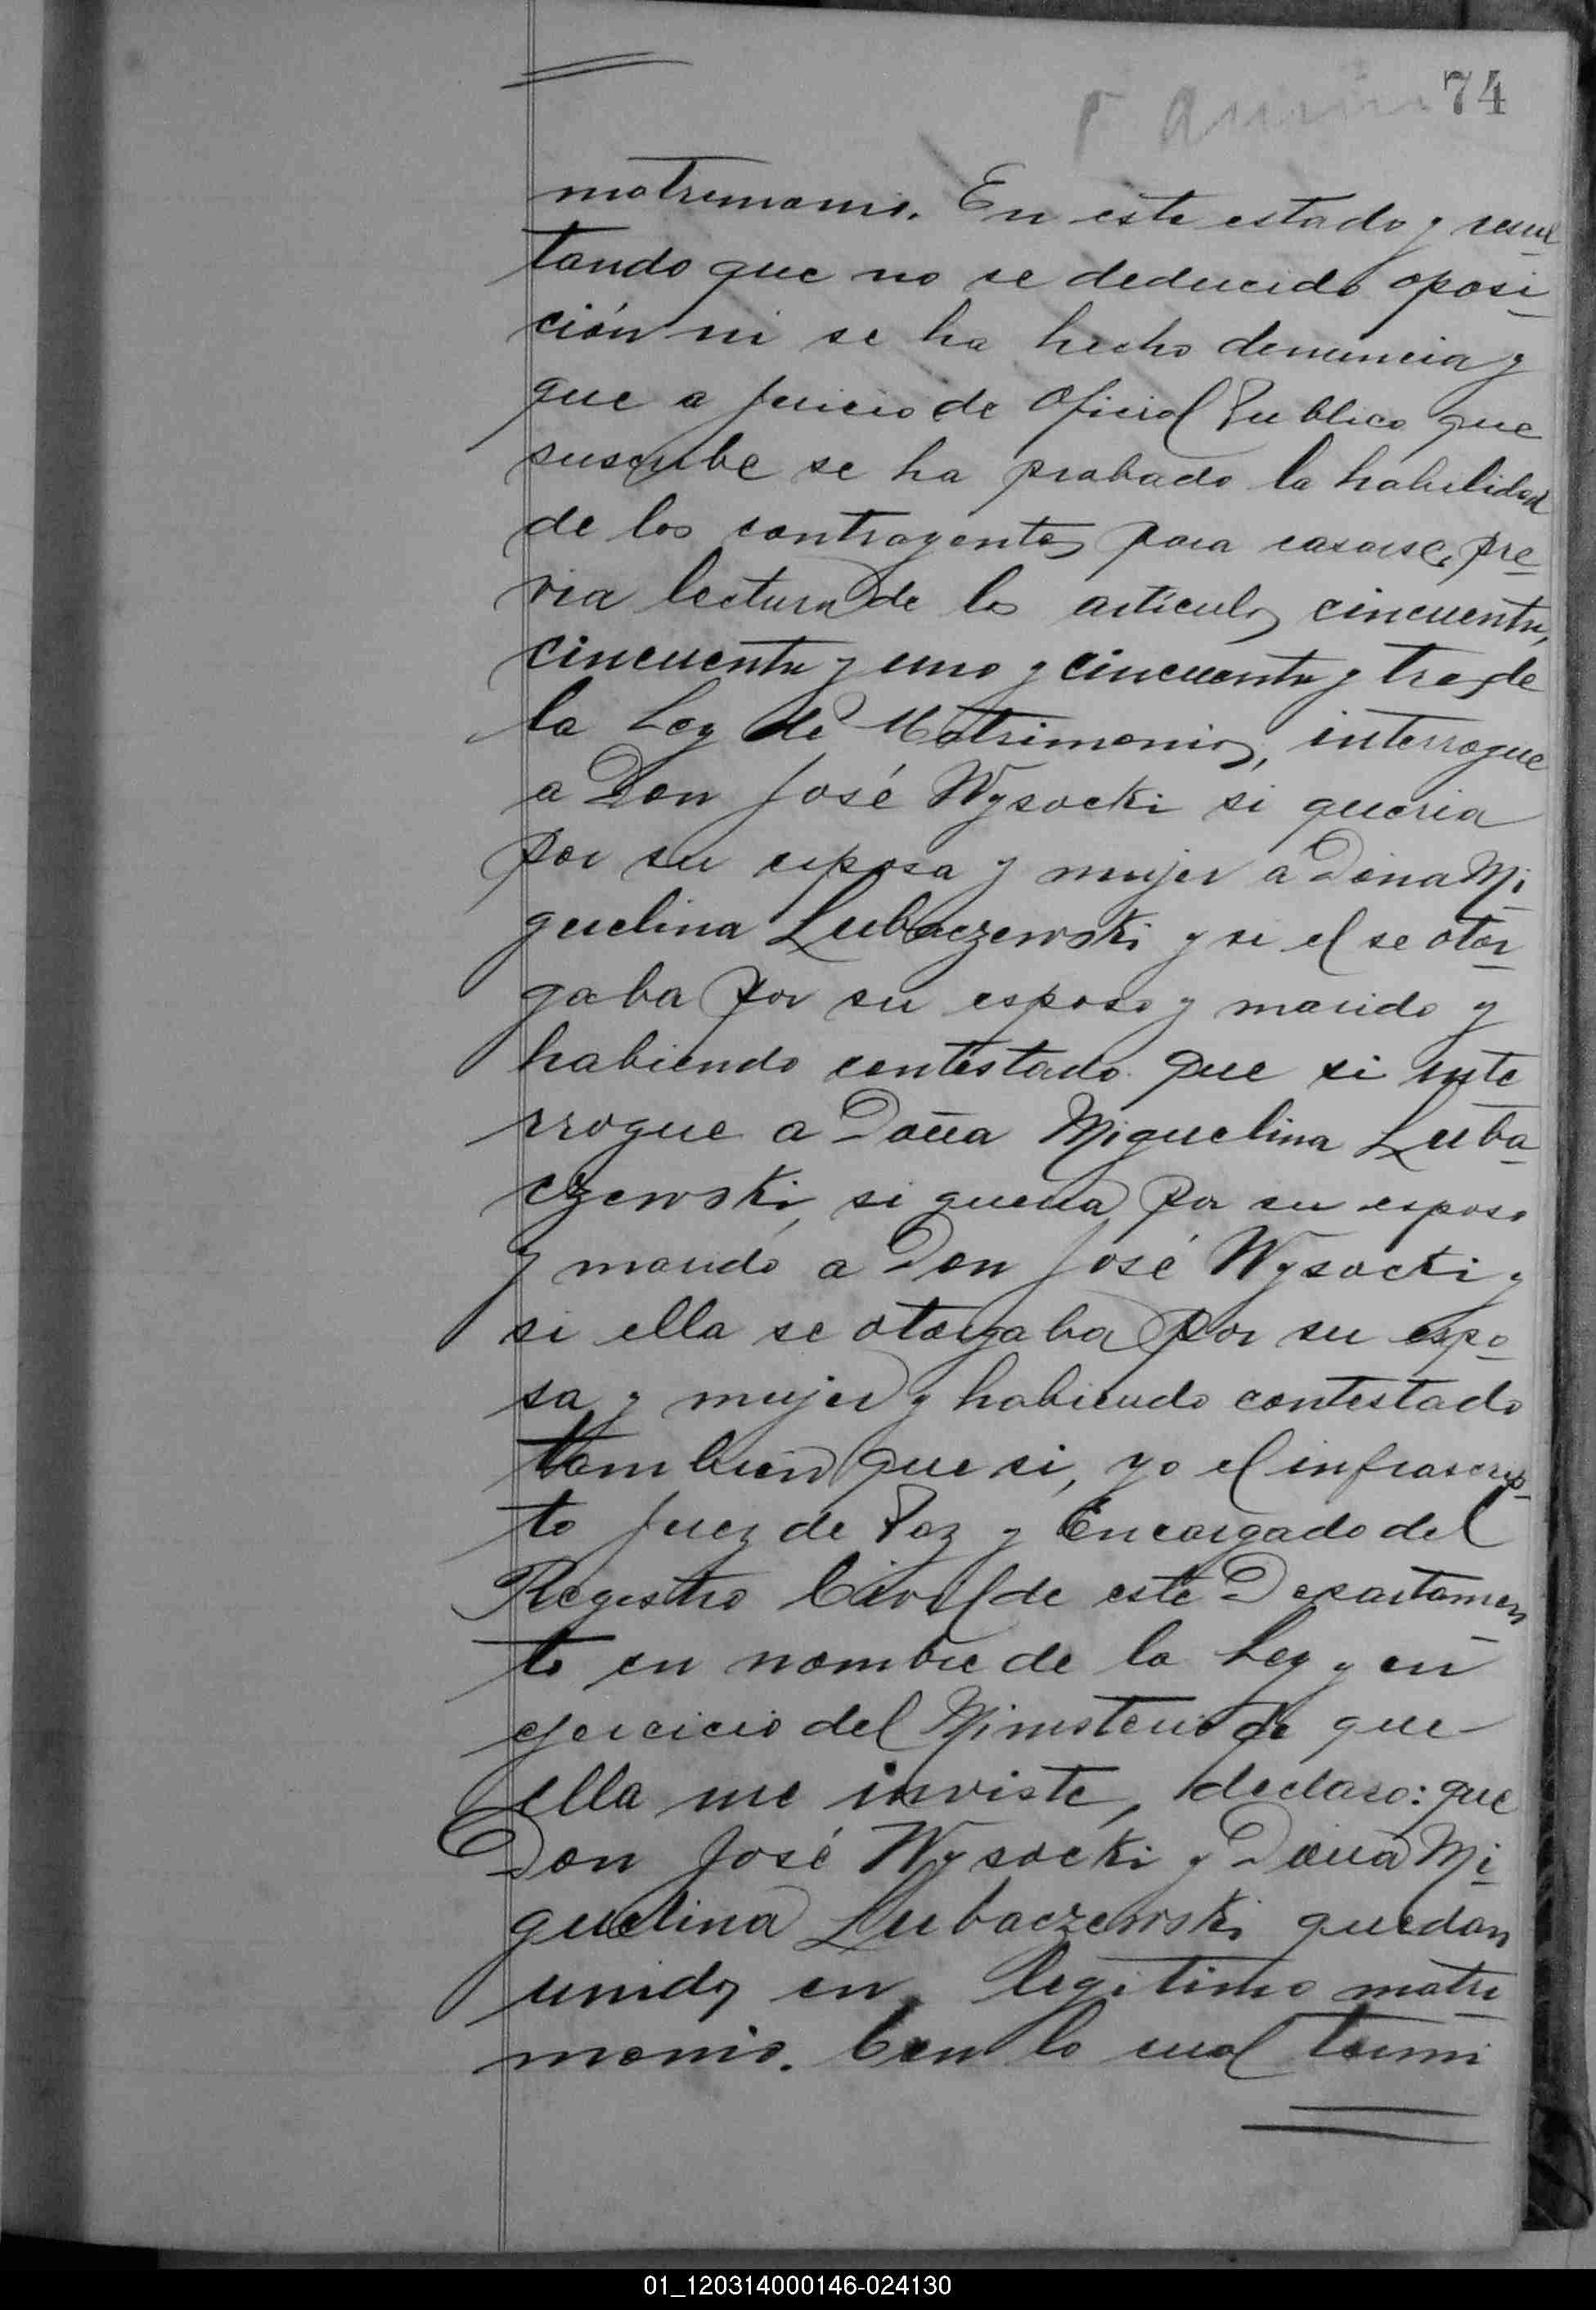 74
matrimonio. En este estado y resul
tando que no se deducido oposi-
ción ni se ha hecho denuncia y
que a juicio de Oficial Publico que
suscribe se ha probado la habilidad
de los contrayentes para casarse, pre-
via lectura de los articulos cincuenta,
cincuenta y uno y cincuenta y tres de
la Ley de Matrimonios, interrogue
a Don José Wysocki si queria
por su esposa y mujer a Dona Mi-
guelina Lubaczewski y si el se otor-
gaba por su esposo y marido y
habiendo contestado que si inte
rrogue a Doña Miguelina Luba-
czewski, si queria por su esposo
y marido a Don José Wysocki y
si ella se otorgaba por su espo-
sa y mujer y habiendo contestado
tambien que si, yo el infrascrip-
to Juez de Paz y Encargado del
Registro Civil de este Departamen-
to en nombre de la Ley y en
ejercicio del Ministerio de que
ella me inviste, declaro: que
Don José Wysocki y Doña Mi-
guelina Lubaczewski quedan
unidos en legitimo matri-
monio. Con lo cual termi
01_120314000146-024130